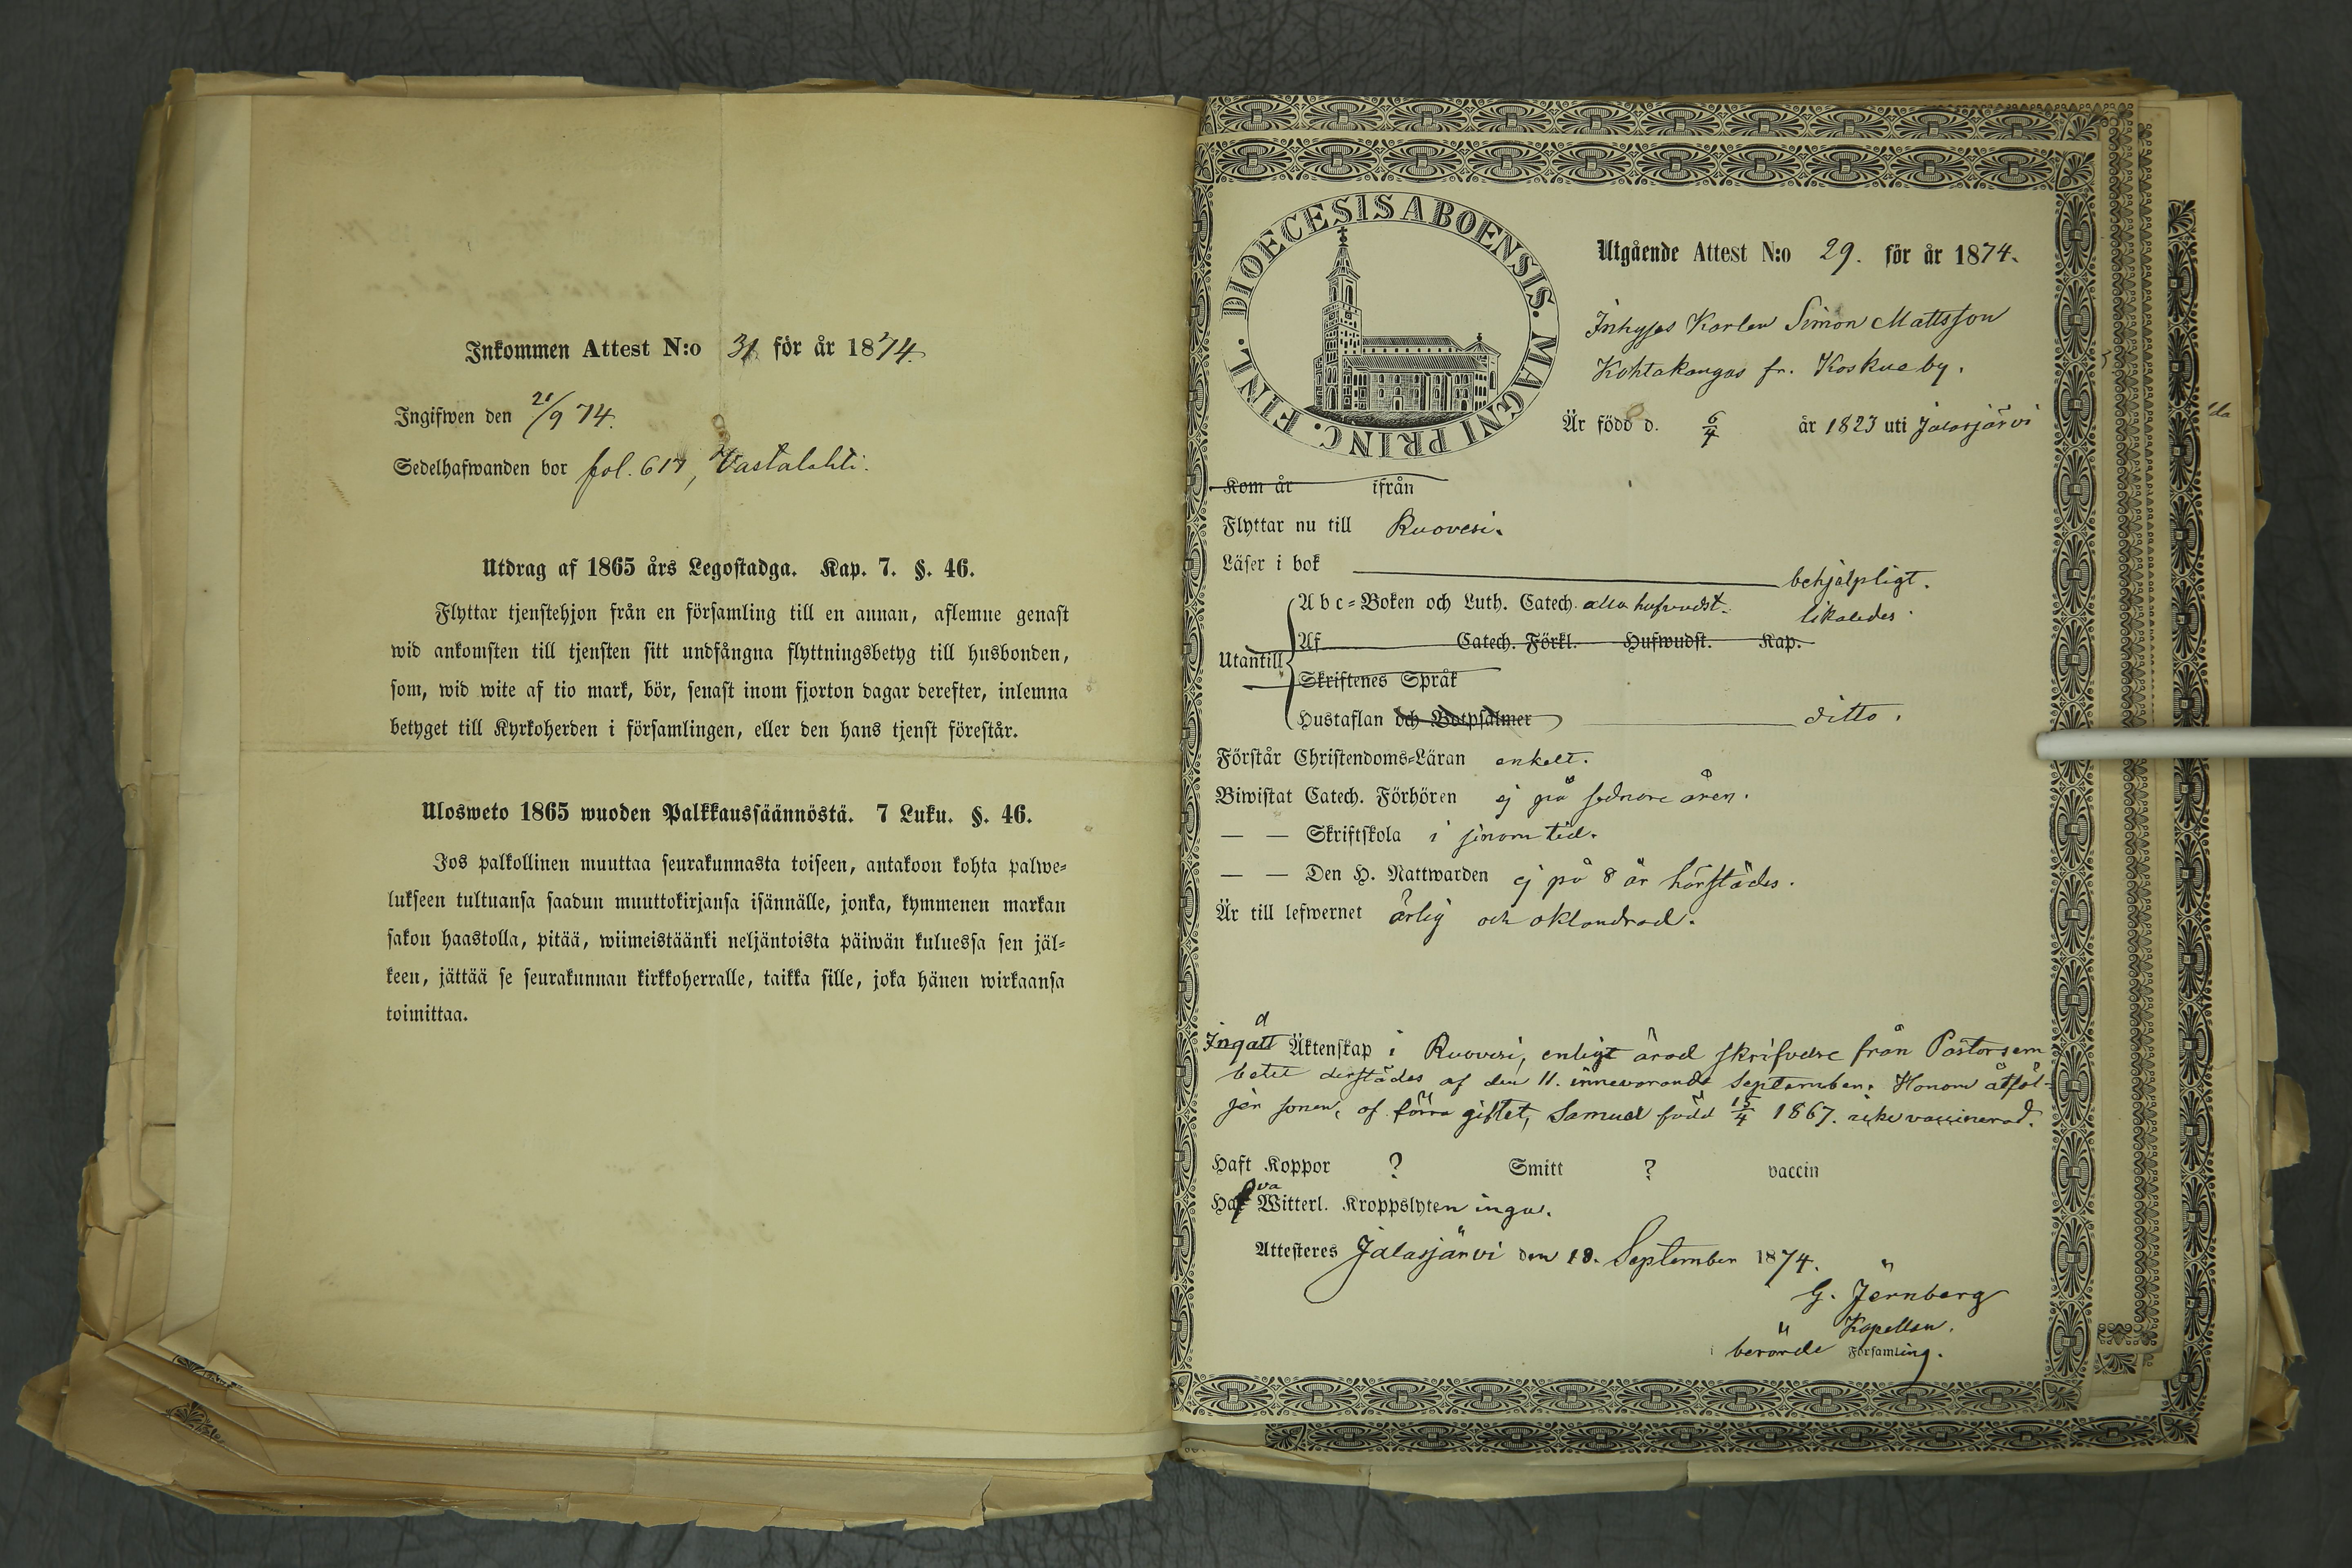 Inkommen Attest N:o 31 för år 1874.
Ingifwen den 21/9 74.
Sedelhafwanden bor fol. 617, Vastalahti.
Utdrag af 1865 års Legostadga. Kap. 7. §. 46.
Flyttar tjenstehjon från en församling till en annan, aflemne genast
wid ankomsten till tjensten sitt undfångna flyttningsbetyg till husbonden,
som, wid wite af tio mark, bör, senast inom fjorton dagar derefter, inlemna
betyget till Kyrkoherden i församlingen, eller den hans tjenst förestår.
Ulosweto 1865 wuoden Palkkaussäännöstä. 7 Luku. §. 46.
Jos palkollinen muuttaa seurakunnasta toiseen, antakoon kohta palwe-
lukseen tultuansa saadun muuttokirjansa isännälle, jonka, kymmenen markan
sakon haastolla, pitää, wiimeistäänki neljäntoista päiwän kuluessa sen jäl-
keen, jättää se seurakunnan kirkkoherralle, taikka sille, joka hänen wirkaansa
toimittaa.
DIOECESIS ABOENSIS. MAGNI PRINC. FINL.
Utgående Attest N:o 29. för år 1874.
Inhyses Karlen Simon Mattsson
Kohtakangas fr. Koskue by.
Är född d. 6/4 år 1823 uti Jalasjärvi
Kom år ifrån
Flyttar nu till Ruovesi.
Läser i bok behjelpligt.
Abc-Boken och Luth. Catech. alla hufvudst. likaledes.
Utantill
Af Catech. Förkl. Hufwudst. Kap.
Skriftenes Språk
Hustaflan och Botpsalmer ditto.
Förstår Christendoms-Läran enkelt.
Biwistat Catech. Förhören ej på sednare åren.
— — Skriftskola i sinom tid.
— — Den H. Nattwarden ej på 8 år härstädes.
Är till lefwernet ärlig och oklandrad.
Ingått Äktenskap i Ruovesi, enligt ärad skrifvelse från Pastorsem
betet derstädes af den 11. innevarande September. Honom åtföl-
jer sonen, af förra giftet, Samuel född 15/4 1867. icke vaccinerad.
Haft Koppor ? Smitt ? vaccin
Hafva Witterl. Kroppslyten inga.
Attesteres Jalasjärvi den 18. September 1874.
G. Jernberg
Kapellan.
berörde Församling.